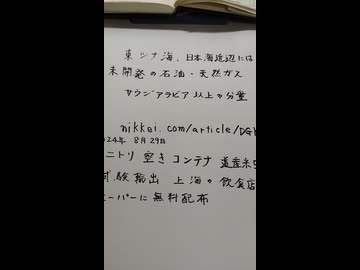 東シナ海、日本海近辺には
未開発の石油・天然ガス
サウジアラビア以上の分量
nikkei.com/article/DG
2024年 8月29日
ニトリ 空き コンテナ 道産米
試験輸出 上海の飲食店
スーパーに無料配布